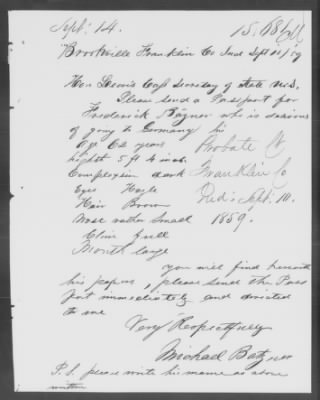 Sept. 14. 15.686
Brookville Franklin Co Ind Sept 11/59
Hon Lewis Cass Secretary of State U.S.
Please send a Passport for
Frederick Bazner who is desirous
of going to Germany his
Age 62 years
hight 5 ft 4 inch
Complexsion dark
Eyes Hazle
Hair Brown
Nose rather Small
Chin full
Mouth large
Probate Ct
Franklin Co
Ind: Sept. 10.
1859.
you will find herewith
his papers, please send the Pass
Port immediately and directed
to me
Very Respectfully
Michael Batzner
P.S. please write his name as above
written